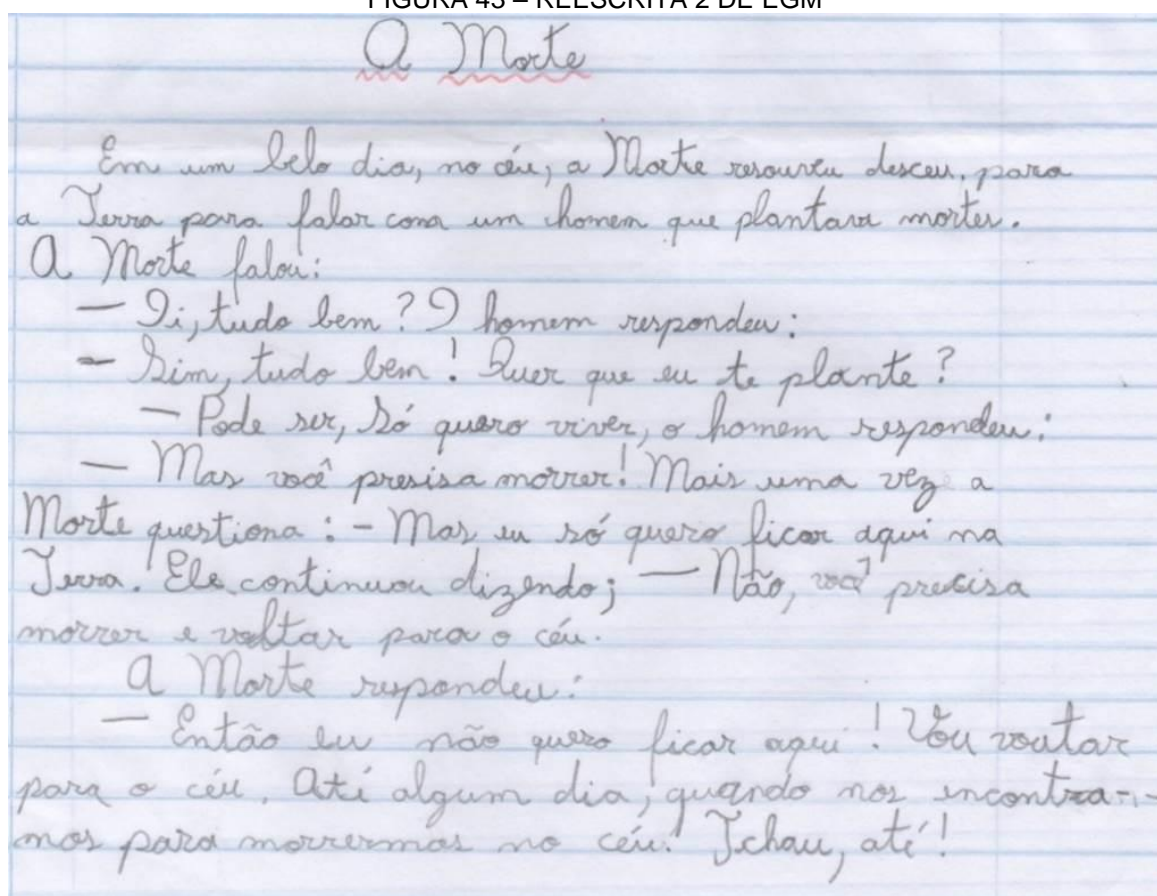 FIGURA 43 – REESCRITA 2 DE EGM
A Morte
Em um belo dia, no céu, a Morte resouveu desceu, para
a Terra para falar com um homem que plantava mortes.
A Morte falou:
— Oi, tudo bem? O homem respondeu:
— Sim, tudo bem! Quer que eu te plante?
— Pode ser, só quero viver, o homem respondeu:
— Mas você presisa morrer! Mais uma vez a
Morte questiona: - Mas eu só quero ficar aqui na
Terra. Ele continuou dizendo; — Não, você precisa
morrer e voltar para o céu.
A Morte respondeu:
— Então eu não quero ficar aqui! Vou voutar
para o céu. Até algum dia, quando nos encontra-
mos para morrermos no céu! Tchau, até!